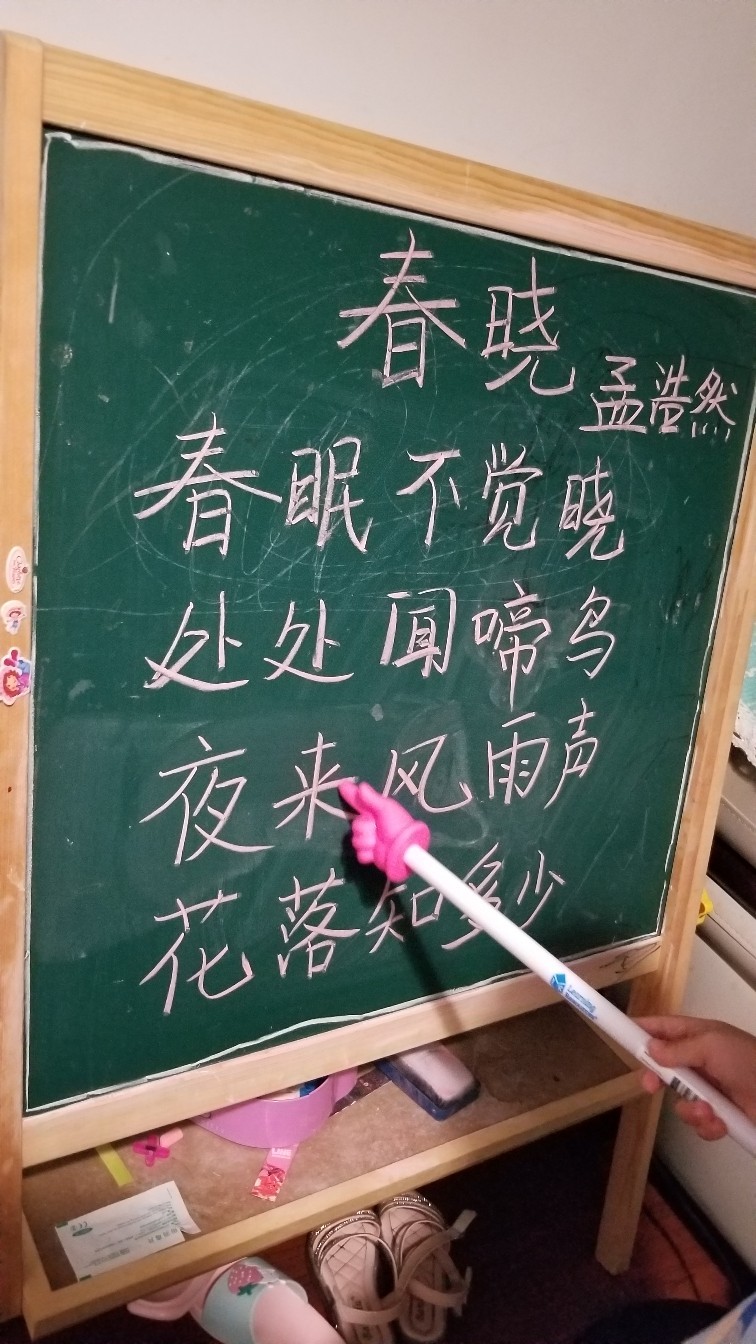 春晓
孟浩然
春眠不觉晓
处处闻啼鸟
夜来风雨声
花落知多少
Learning